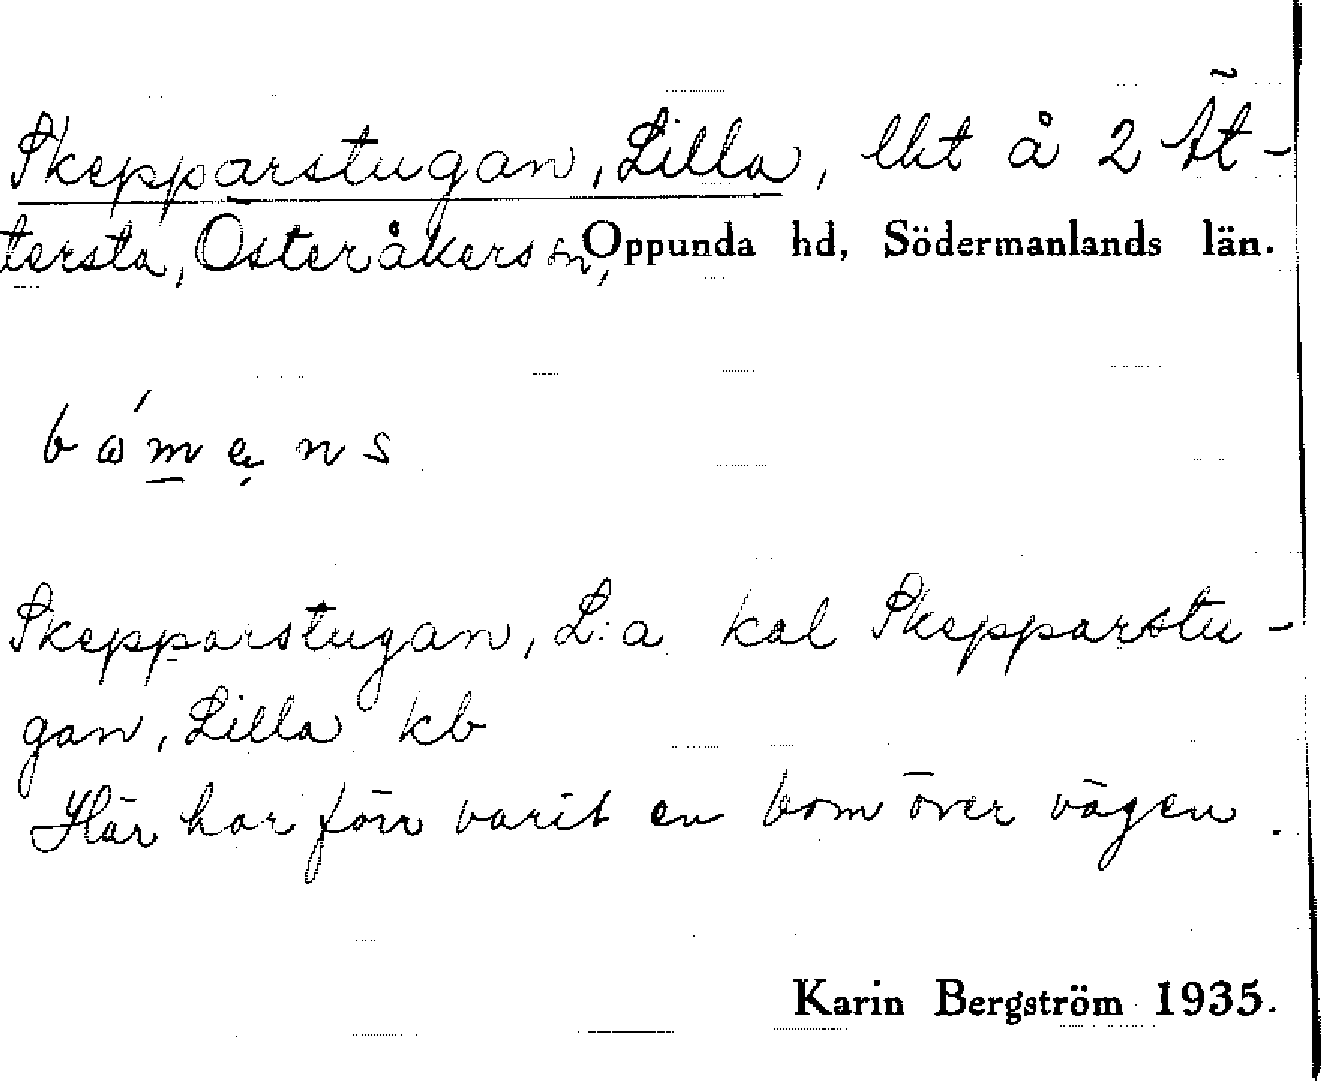 Skepparstugan, Lilla, lht å 2 Ät-
tersta, Österåkers sn, Oppunda hd, Södermanlands län.
Skepparstugan, L:a kal Skepparstu-
gan, Lilla kb
Här har förr varit en bom över vägen.
Karin Bergström 1935.